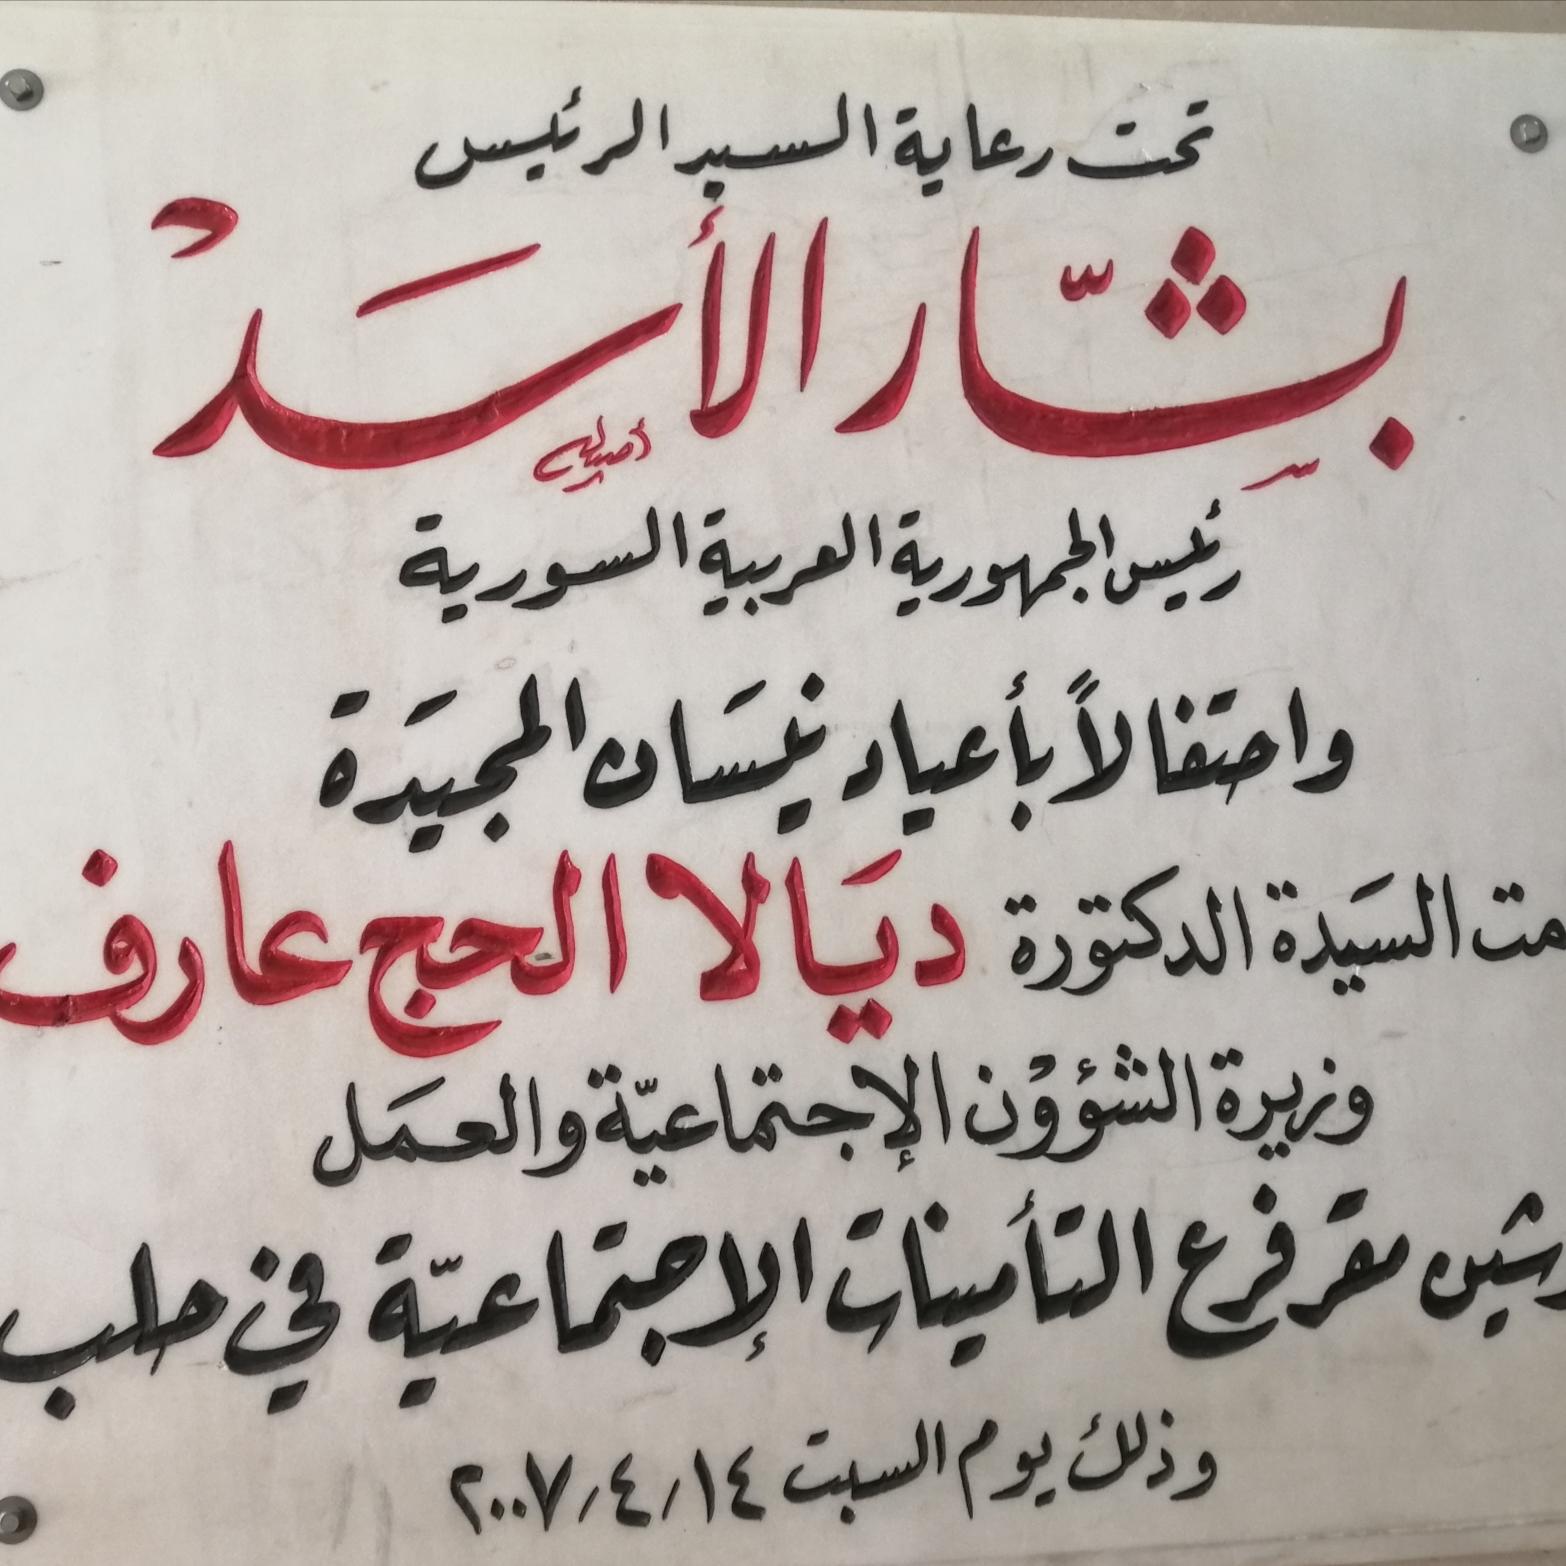 تحت رعاية السيد الرئيس
بشّار الأسَدْ
رئيس الجمهورية العربية السورية
واحتفالاً بأعياد نيسَان المجيَدة
مت السيَدة الدكتورة ديَالا الحج عارف
وزيرة الشؤوْن الإجتماعيّة والعمَل
شين مقر فرع التأمينات الإجتماعيّة في حلب
وذلك يوم السبت ١٤/٤/٢٠٠٧